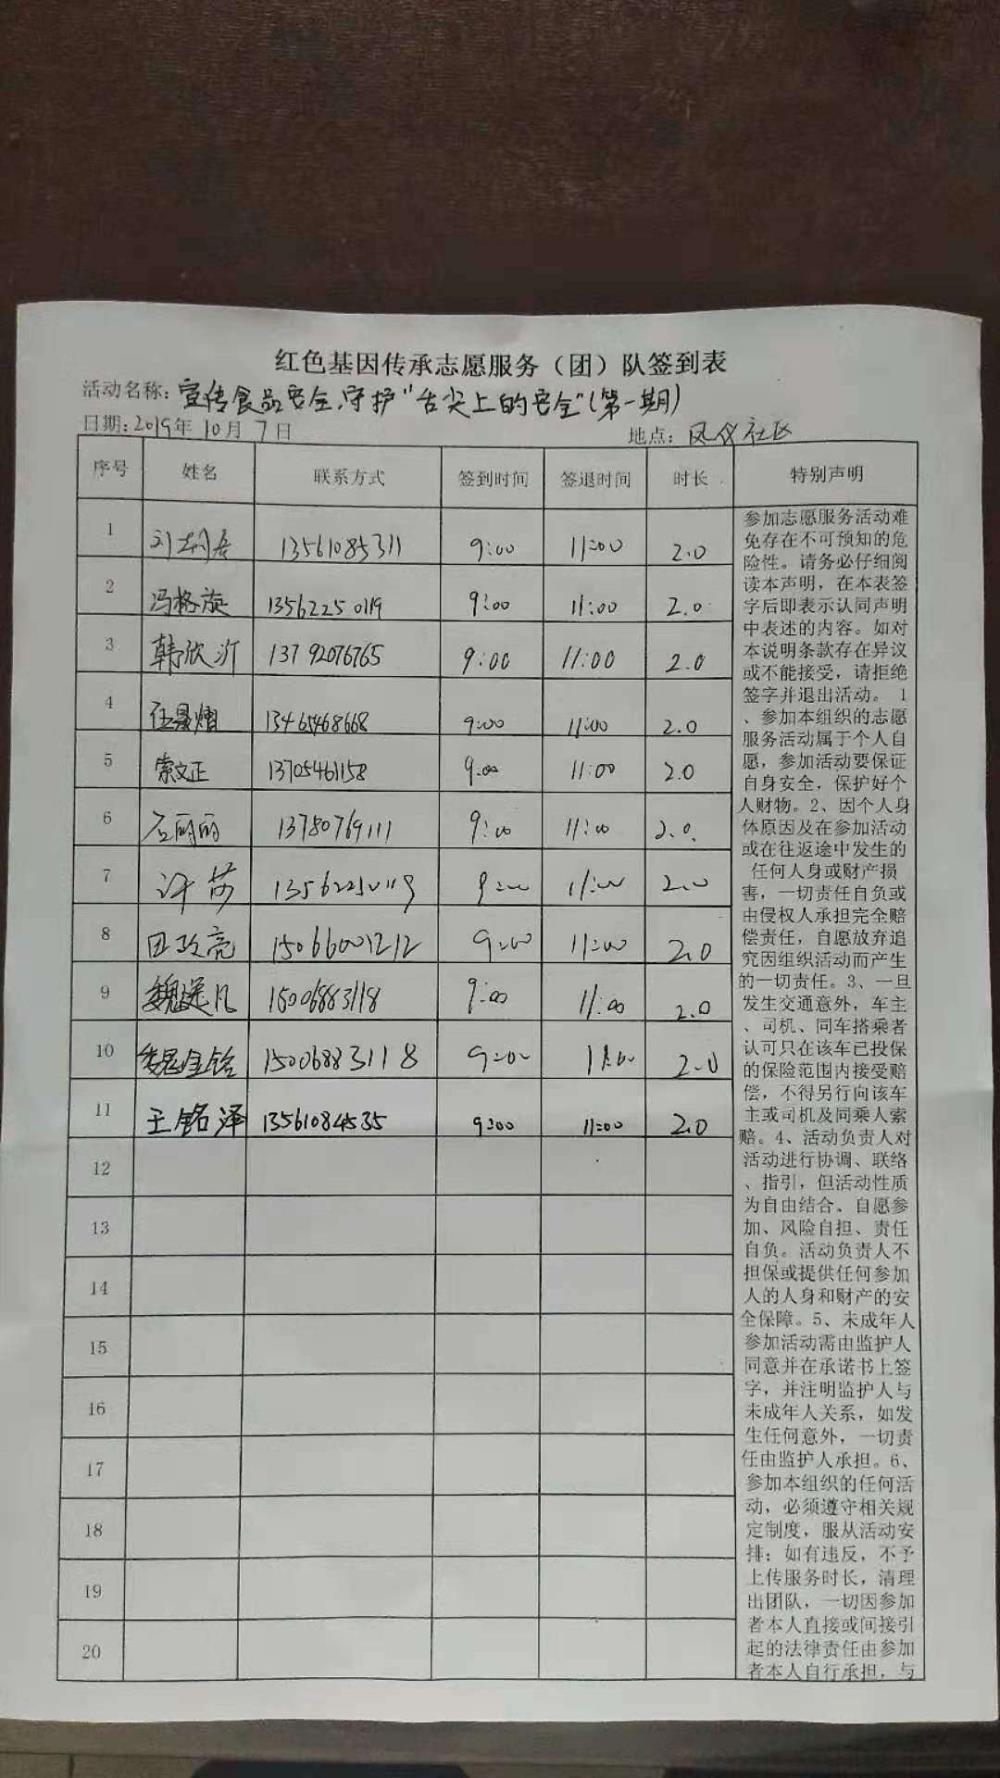 红色基因传承志愿服务（团）队签到表
活动名称：宣传食品安全,守护"舌尖上的安全"(第一期)
日期：2019年10月7日 地点：凤仪社区
序号 姓名 联系方式 签到时间 签退时间 时长 特别声明
1 13561085311 9:00 11:00 2.0
2 冯格旋 13562250119 9:00 11:00 2.0
3 韩欣汀 13792076765 9:00 11:00 2.0
4 13465468668 9:00 11:00 2.0
5 索文正 13705461158 9:00 11:00 2.0
6 石丽丽 13780769111 9:00 11:00 2.0
7 许莎 9:00 11:00 2.0
8 田政亮 15066001212 9:00 11:00 2.0
9 15006883118 9:00 11:00 2.0
10 魏金铭 15006883118 9:00 11:00 2.0
11 王铭泽 13561084535 9:00 11:00 2.0
12
13
14
15
16
17
18
19
20
参加志愿服务活动难
免存在不可预知的危
险性。请务必仔细阅
读本声明，在本表签
字后即表示认同声明
中表述的内容。如对
本说明条款存在异议
或不能接受，请拒绝
签字并退出活动。1
、参加本组织的志愿
服务活动属于个人自
愿，参加活动要保证
自身安全，保护好个
人财物。2、因个人身
体原因及在参加活动
或在往返途中发生的
任何人身或财产损
害，一切责任自负或
由侵权人承担完全赔
偿责任，自愿放弃追
究因组织活动而产生
的一切责任。3、一旦
发生交通意外，车主
、司机、同车搭乘者
认可只在该车已投保
的保险范围内接受赔
偿，不得另行向该车
主或司机及同乘人索
赔。4、活动负责人对
活动进行协调、联络
、指引，但活动性质
为自由结合、自愿参
加、风险自担、责任
自负。活动负责人不
担保或提供任何参加
人的人身和财产的安
全保障。5、未成年人
参加活动需由监护人
同意并在承诺书上签
字，并注明监护人与
未成年人关系，如发
生任何意外，一切责
任由监护人承担。6、
参加本组织的任何活
动，必须遵守相关规
定制度，服从活动安
排；如有违反，不予
上传服务时长，清理
出团队，一切因参加
者本人直接或间接引
起的法律责任由参加
者本人自行承担，与